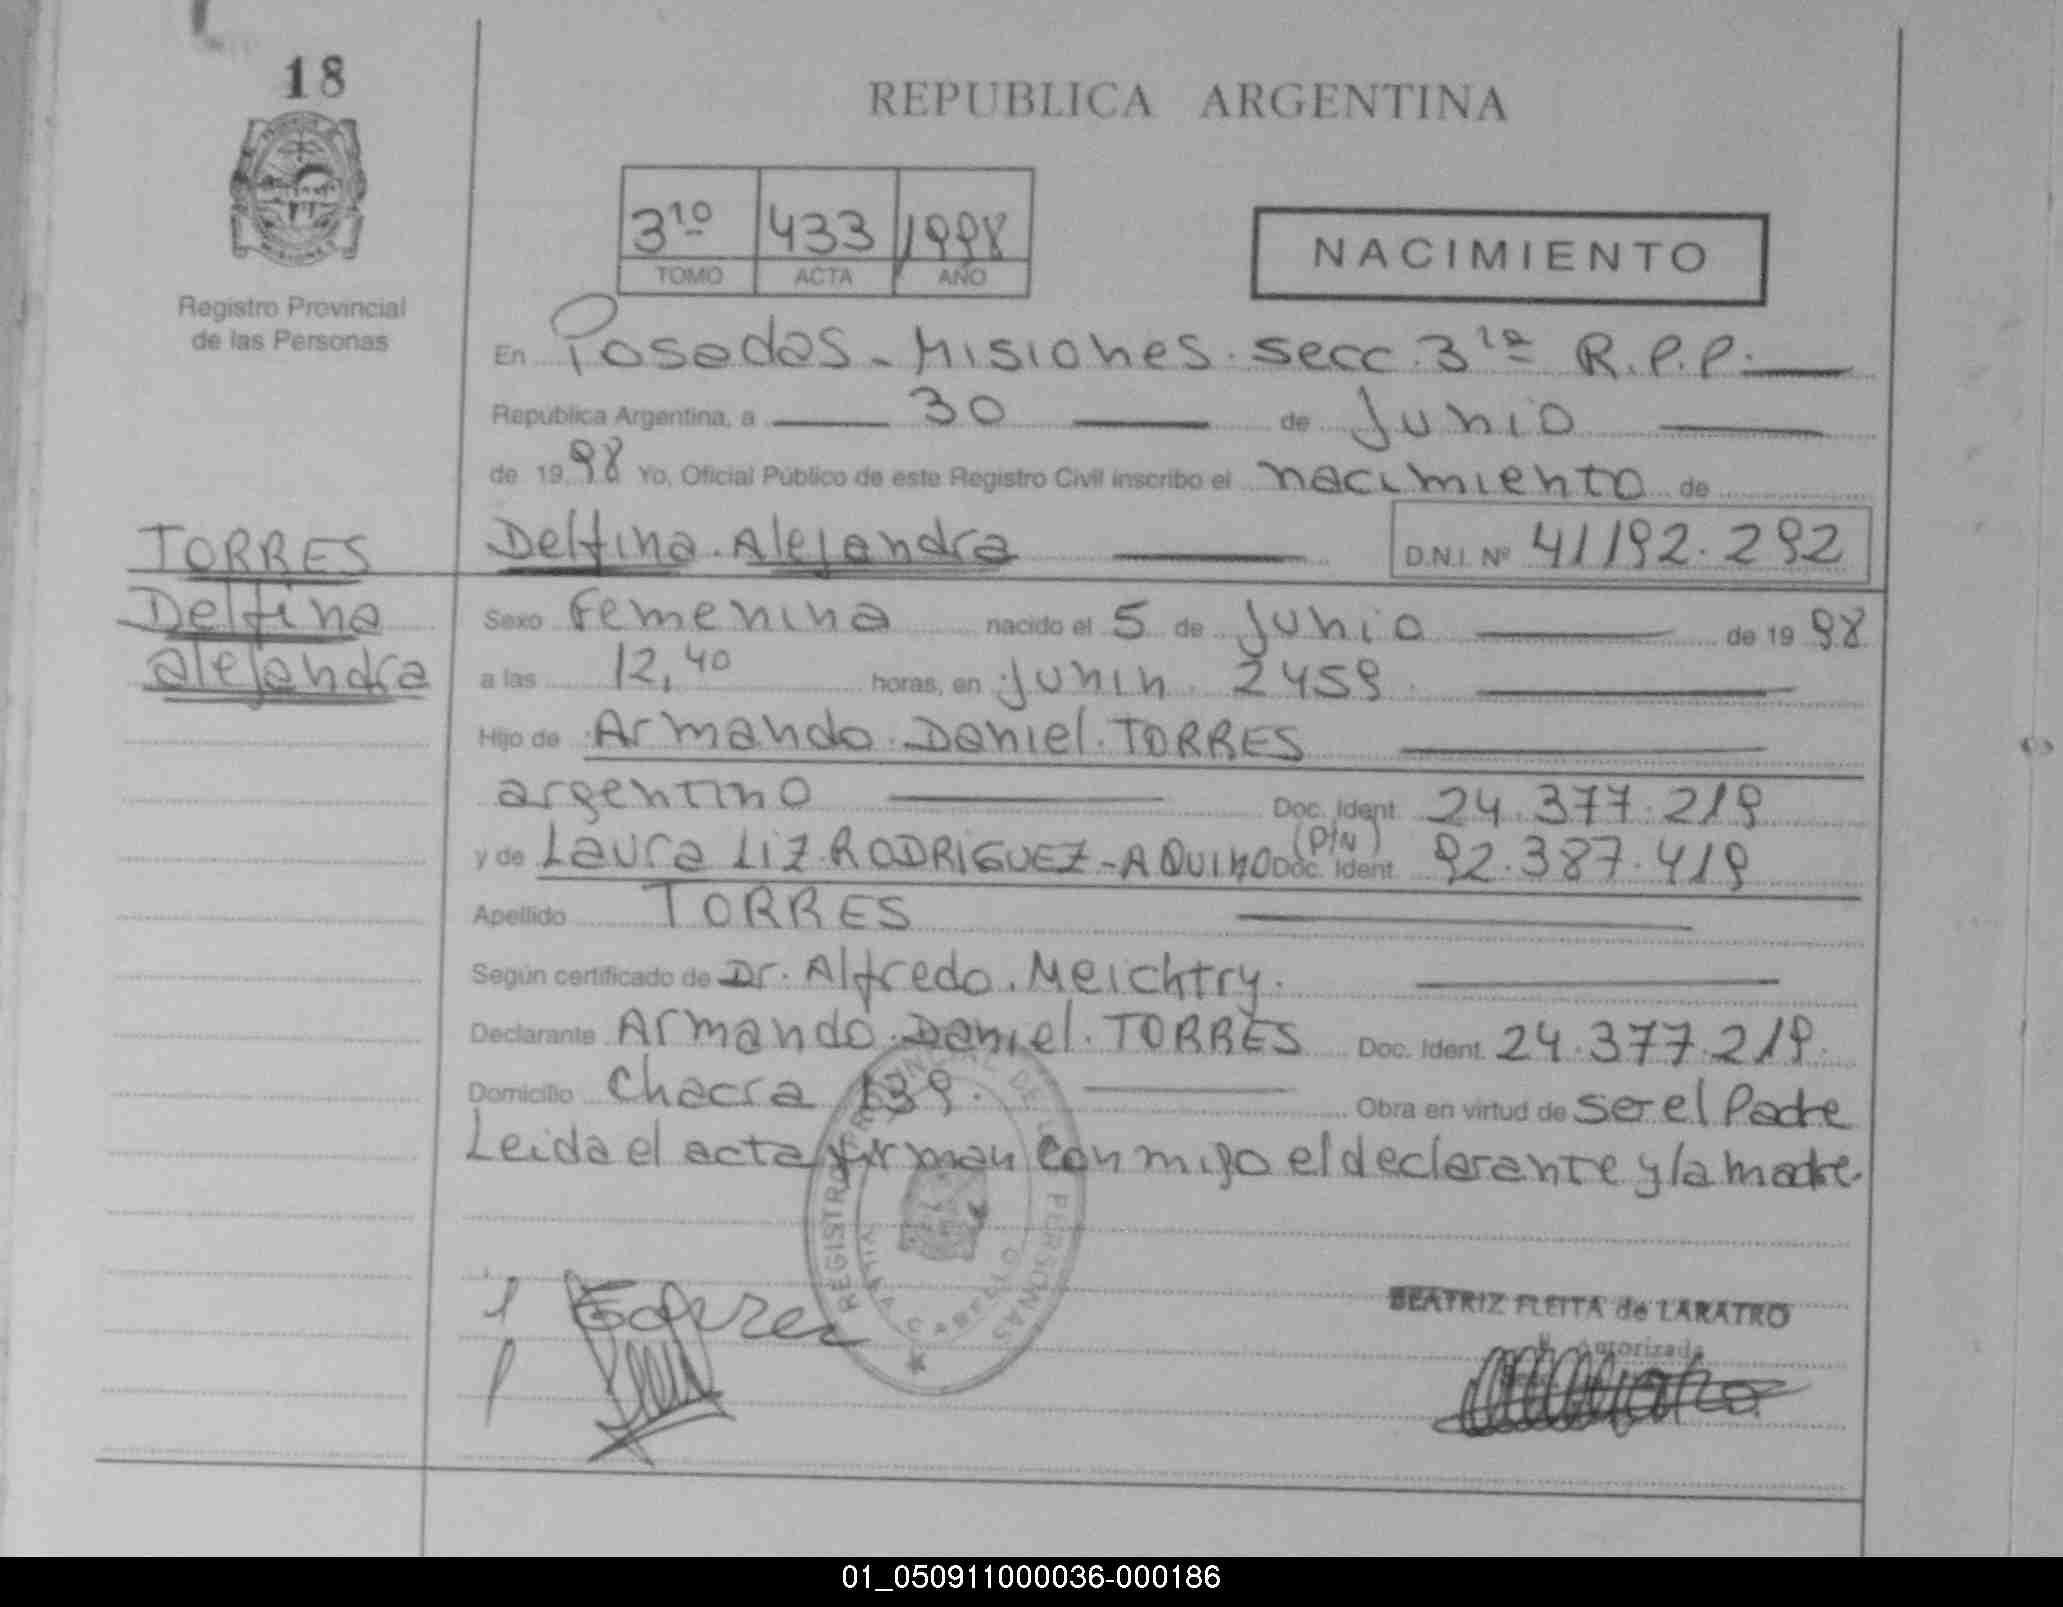 18
REPUBLICA ARGENTINA
3ro 433 1998
TOMO ACTA AÑO
NACIMIENTO
Registro Provincial
de las Personas
En Posadas - Misiones. secc. 3ra R.P.P.
República Argentina, a 30 de Junio
de 1998 Yo, Oficial Público de este Registro Civil inscribo el nacimiento de
TORRES
Delfina
alejandra
Delfina. Alejandra D.N.I. Nº 41192.292
Sexo Femenina nacido el 5 de Junio de 1998
a las 12,40 horas, en Junin. 2459.
Hijo de Armando. Daniel. TORRES
argentino Doc. Ident. 24.377.219
y de Laura LiZ. RODRIGUEZ-AQUINO Doc. Ident. 92.387.419
Apellido TORRES
Según certificado de Dr. Alfredo. Meichtry.
Declarante Armando. Daniel. TORRES Doc. Ident. 24.377.219.
Domicilio Chacra 139. Obra en virtud de ser el Padre
Leida el acta firman conmigo el declarante y la madre.
REGISTRO PROVINCIAL DE LAS PERSONAS
VILLA CABELLO
BEATRIZ FLEITA de LARATRO
Autorizada
01_050911000036-000186